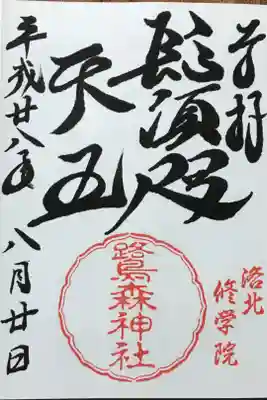 奉拝
洛北
修学院
鬚咫
天王
鷺森神社
平成廿八年八月廿日